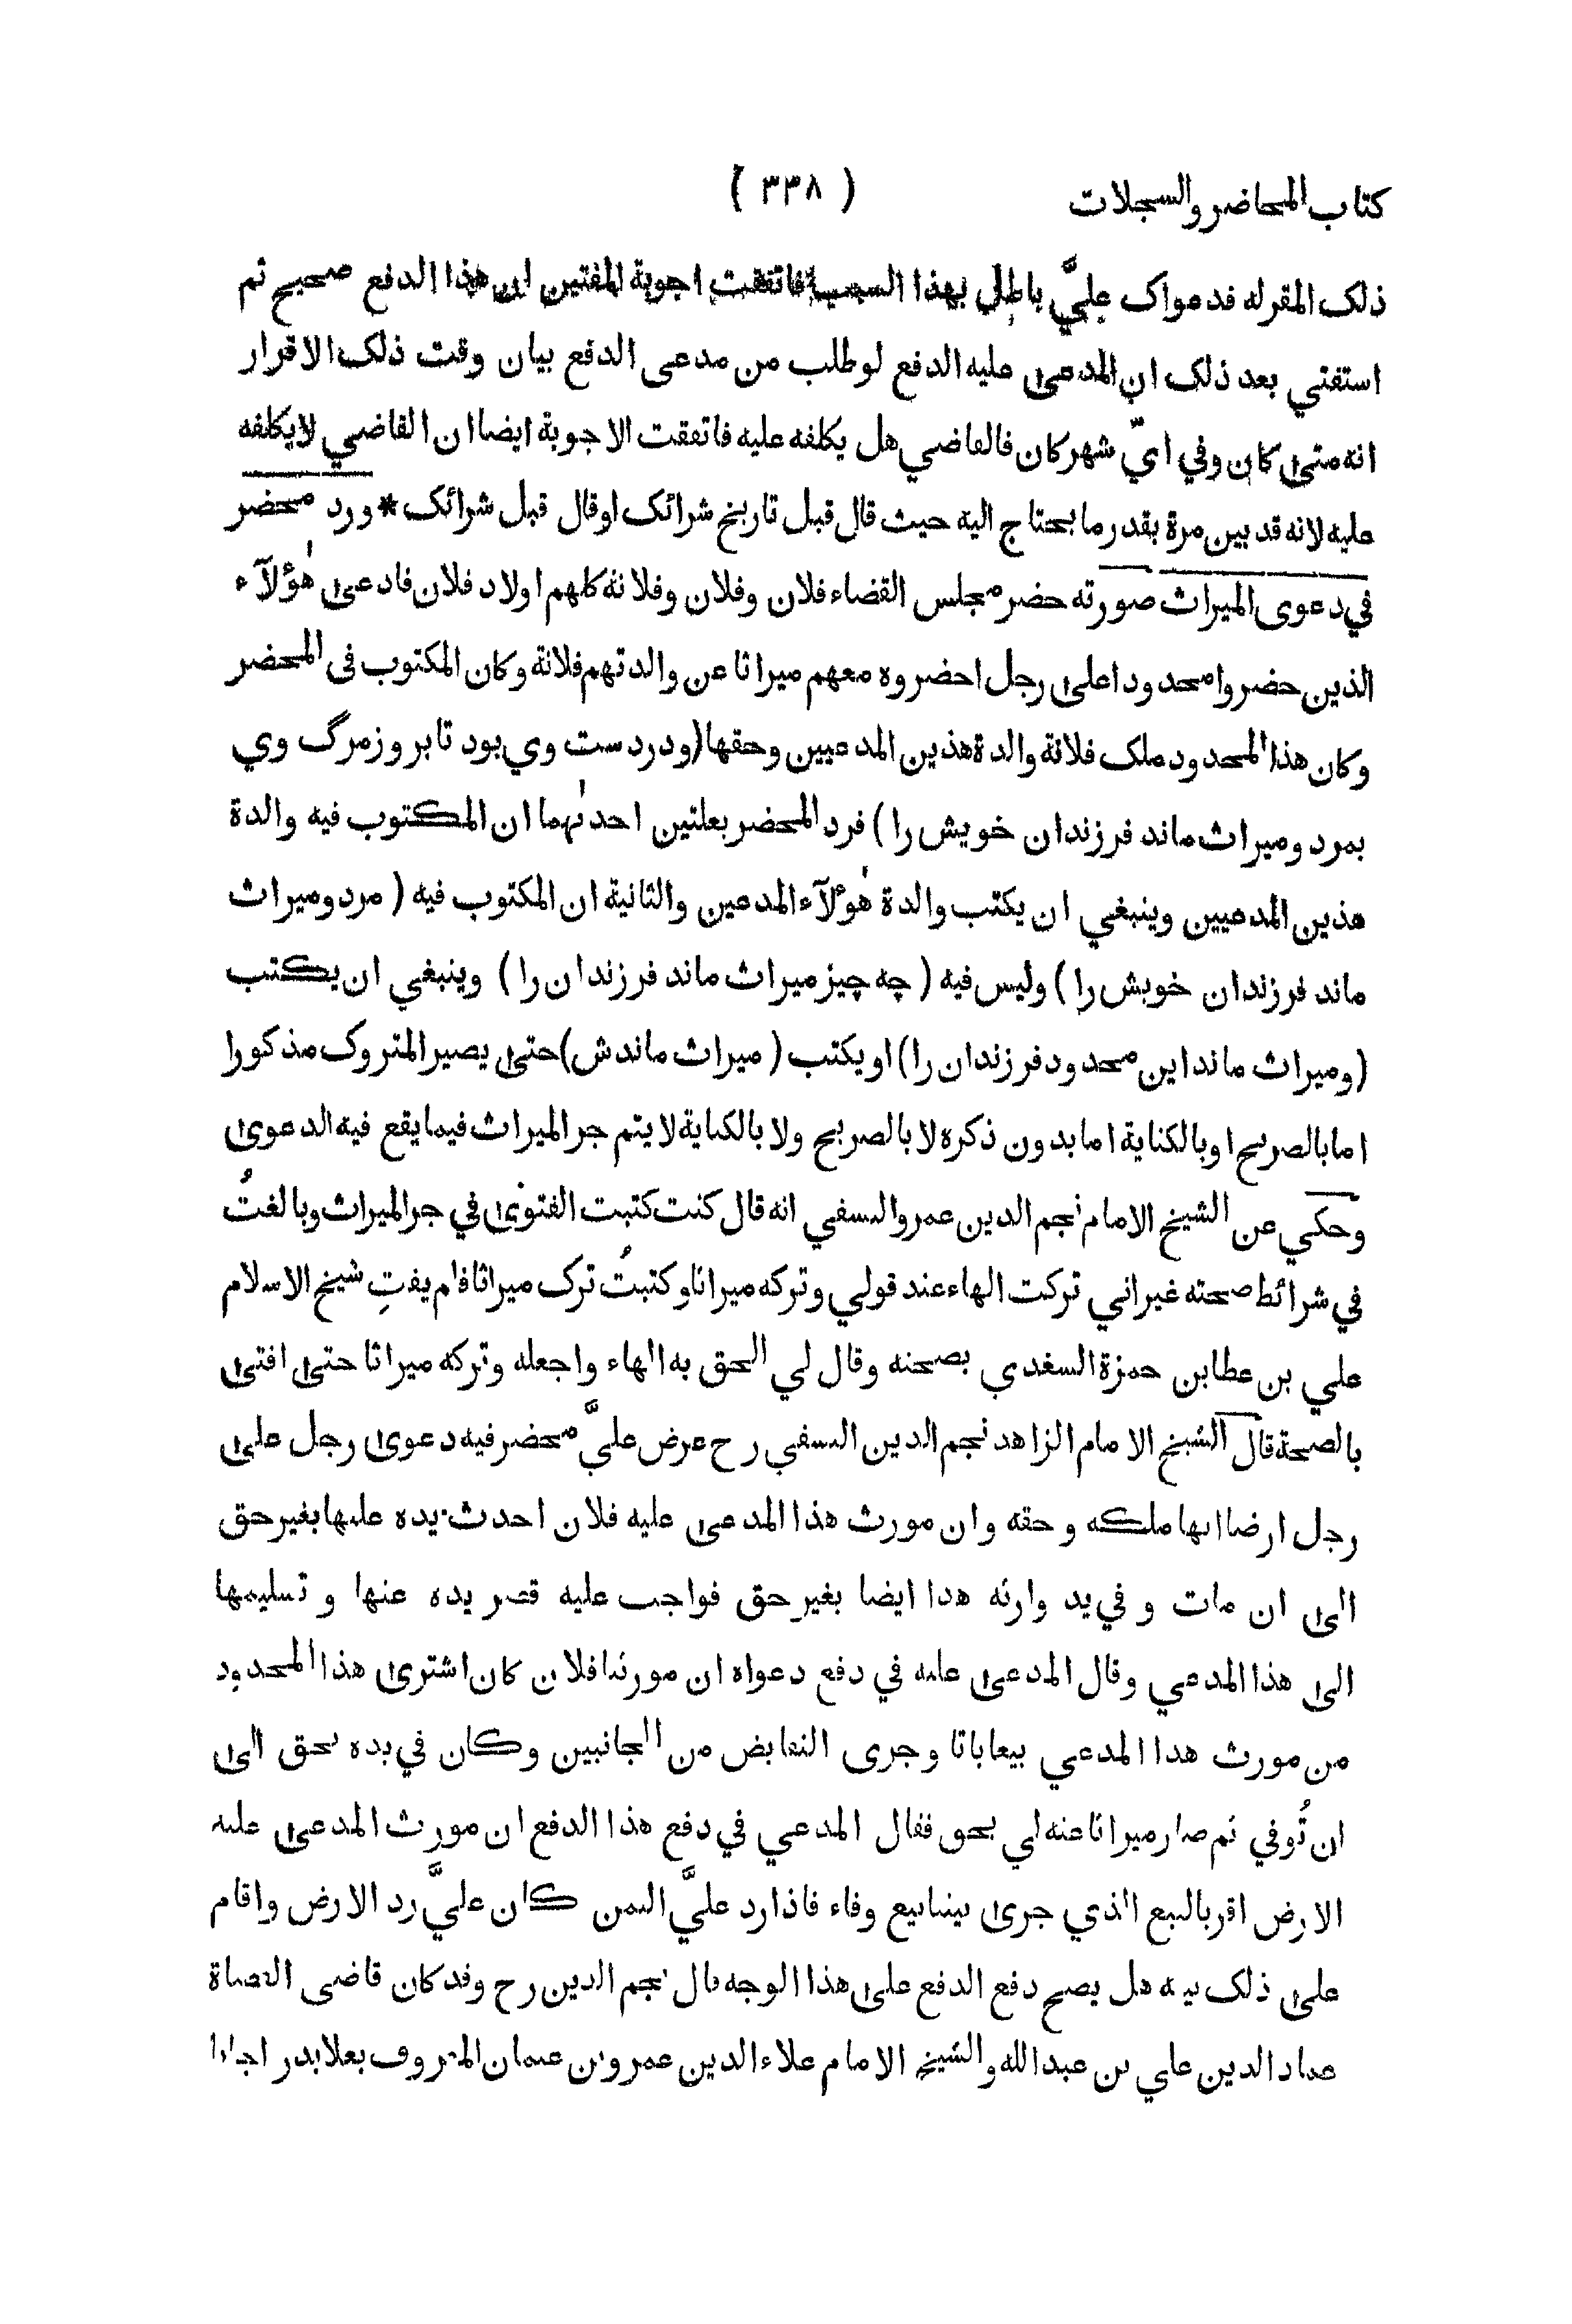 كتاب المحاضر والسجلات ( ٣٣٨ )
ذلك المقرله فدعواك عليَّ باطل بهذا السبب فاتفقت اجوبة المفتين ان هذا الدفع صحيح ثم
استفتي بعد ذلك ان المدعى عليه الدفع لو طلب من مدعى الدفع بيان وقت ذلك الاقرار
انه متى كان وفي ايّ شهر كان فالقاضي هل يكلفه عليه فاتفقت الاجوبة ايضا ان القاضي لا يكلفه
عليه لانه قد بين مرة بقدر ما يحتاج اليه حيث قال قبل تاريخ شرائك او قال قبل شرائك * ورد محضر
في دعوى الميراث صورته حضر مجلس القضاء فلان وفلان وفلانة كلهم اولاد فلان فادعى هٰؤلآء
الذين حضروا محدودا على رجل احضروه معهم ميراثا عن والدتهم فلانة وكان المكتوب فى المحضر
وكان هذا المحدود ملك فلانة والدة هذين المدعيين وحقها (ودر دست وي بود تا بروز مرگ وي
بمرد وميراث ماند فرزندان خويش را ) فرد المحضر بعلتين احدٰىهما ان المكتوب فيه والدة
هذين المدعيين وينبغي ان يكتب والدة هٰؤلآء المدعين والثانية ان المكتوب فيه ( مرد وميراث
ماند فرزندان خويش را ) وليس فيه ( چه چيز ميراث ماند فرزندان را ) وينبغي ان يكتب
(وميراث ماند اين محدود فرزندان را) او يكتب ( ميراث ماندش) حتى يصير المتروك مذكورا
اما بالصريح او بالكناية اما بدون ذكره لا بالصريح ولا بالكناية لا يتم جر الميراث فيما يقع فيه الدعوى
وحكي عن الشيخ الامام نجم الدين عمرو النسفي انه قال كنت كتبت الفتوى في جر الميراث وبالغتُ
في شرائط صحته غير اني تركت الهاء عند قولي وتركه ميراثا وكتبتُ ترك ميراثا فلم يفتِ شيخ الاسلام
علي بن عطا بن حمزة السغدي بصحته وقال لي الحق به الهاء واجعله وتركه ميراثا حتى افتى
بالصحة قال الشيخ الامام الزاهد نجم الدين النسفي رح عرض عليَّ محضر فيه دعوى رجل على
رجل ارضا انها ملكه وحقه وان مورث هذا المدعى عليه فلان احدث يده عليها بغير حق
الى ان مات و في يد وارثه هذا ايضا بغير حق فواجب عليه قصر يده عنها و تسليمها
الى هذا المدعي وقال المدعى عليه في دفع دعواه ان مورثنا فلان كان اشترى هذا المحدود
من مورث هذا المدعي بيعا باتا وجرى التقابض من الجانبين وكان في يده بحق الى
ان تُوفي ثم صار ميراثا عنه لي بحق فقال المدعي في دفع هذا الدفع ان مورث المدعى عليه
الارض اقر بالبيع الذي جرى بيننا بيع وفاء فاذا رد عليَّ الثمن كان عليَّ رد الارض واقام
على ذلك بينة هل يصح دفع الدفع على هذا الوجه قال نجم الدين رح وقد كان قاضى القضاة
عماد الدين علي بن عبد الله والشيخ الامام علاء الدين عمرو بن عثمان المعروف بعلا بدر اجابا